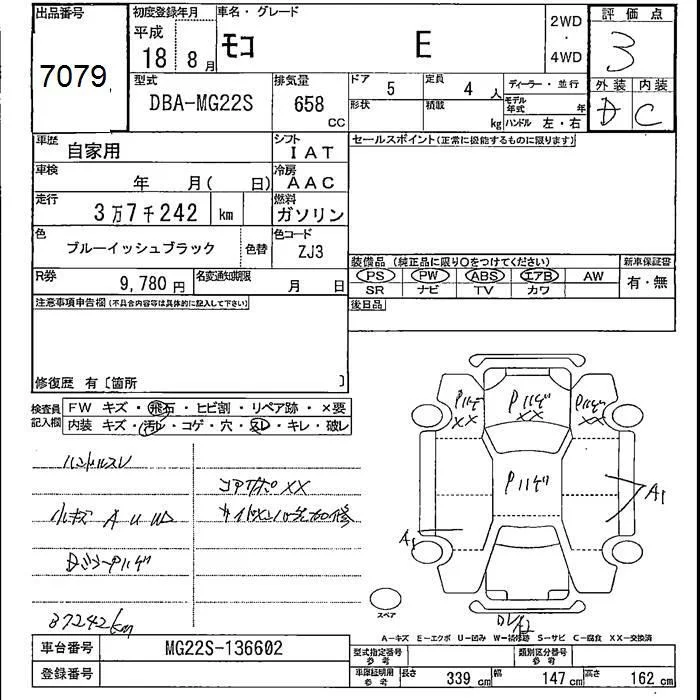 出品番号
7079
初度登録年月
平成
18年 8月
車名・グレード
モコ E
2WD
・
4WD
評価点
3
外装 内装
D C
型式
DBA-MG22S
排気量
658 CC
ドア
5
定員
4 人
形状
積載
kg
ディーラー・並行
モデル年式 年
ハンドル 左・右
車歴
自家用
シフト
IAT
車検
年 月( 日)
冷房
AAC
走行
3万7千242 km
燃料
ガソリン
色
ブルーイッシュブラック
色替
色コード
ZJ3
R券
9,780 円
名変通知期限
月 日
セールスポイント(正常に機能するものに限ります)
装備品 (純正品に限り○をつけてください)
PS PW ABS エアB AW
SR ナビ TV カワ
新車保証書
有・無
後日品
注意事項申告欄(不具合内容等は具体的に記入して下さい)
修復歴 有〔箇所 〕
検査員記入欄
FW キズ・飛石・ヒビ割・リペア跡・×要
内装 キズ・汚レ・コゲ・穴・スレ・キレ・破レ
ハンドルスレ
小キズ A U W
37242km
コアサポXX
Pハゲ XX
Pハゲ XX
Pハゲ XX
Pハゲ
A1
A1
スペア
A-キズ E-エクボ U-凹み W-補修跡 S-サビ C-腐食 XX-交換済
車台番号
MG22S-136602
登録番号
型式指定番号
参考
類別区分番号
参考
車庫証明用
参考
長さ 339 cm
幅 147 cm
高さ 162 cm